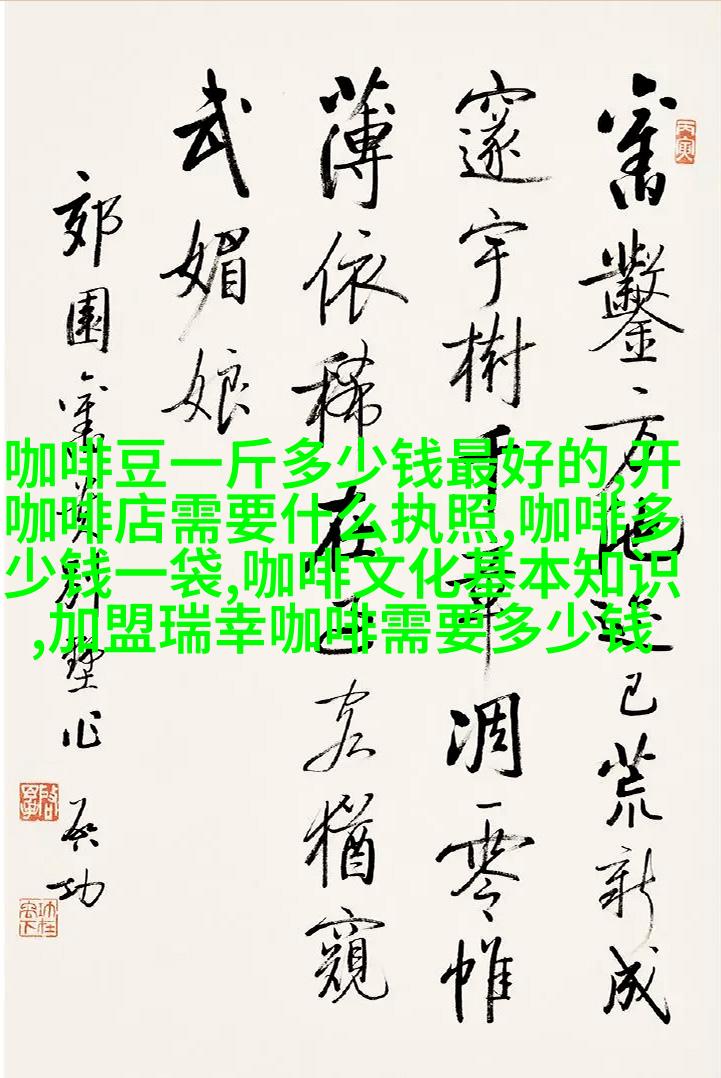 舊鑿方池迹已荒新成
邃宇樹千章凋零帷
薄依稀在猶窺
武媚娘
郊園舊別墅作 啟功
丙寅
咖啡豆一斤多少钱最好的,开
咖啡店需要什么执照,咖啡多
少钱一袋,咖啡文化基本知识
,加盟瑞幸咖啡需要多少钱